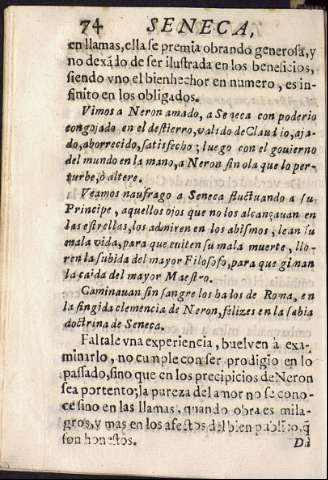 74 SENECA,
en llamas, ella se premia obrando generosa, y
no dexãdo de ser ilustrada en los beneficios,
siendo vno el bienhechor en numero, es in-
finito en los obligados.
Vimos a Neron amado, a Seneca con poderio
congojado en el destierro, valido de Claudio, aja-
do, aborrecido, satisfecho; luego con el gouierno
del mundo en la mano, a Neron sin ola que lo per-
turbe, ò altere.
Veamos naufrago a Seneca fluctuando a su
Principe, aquellos ojos que no los alcançauan en
las estrellas, los admiren en los abismos, lean su
mala vida, para que euiten su mala muerte, llo-
ren la subida del mayor Filosofo, para que giman
la caida del mayor Maestro.
Caminauan sin sangre los halos de Roma, en
la fingida clemencia de Neron, felizes en la sabia
doctrina de Seneca.
Faltale vna experiencia, buelven à exa-
minarlo, no cumple con ser prodigio en lo
passado, sino que en los precipicios de Neron
sea portento; la pureza del amor no se cono-
ce sino en las llamas, quando obra es mila-
gros, y mas en los afectos del bien publico, q̃
son honestos.
Dà